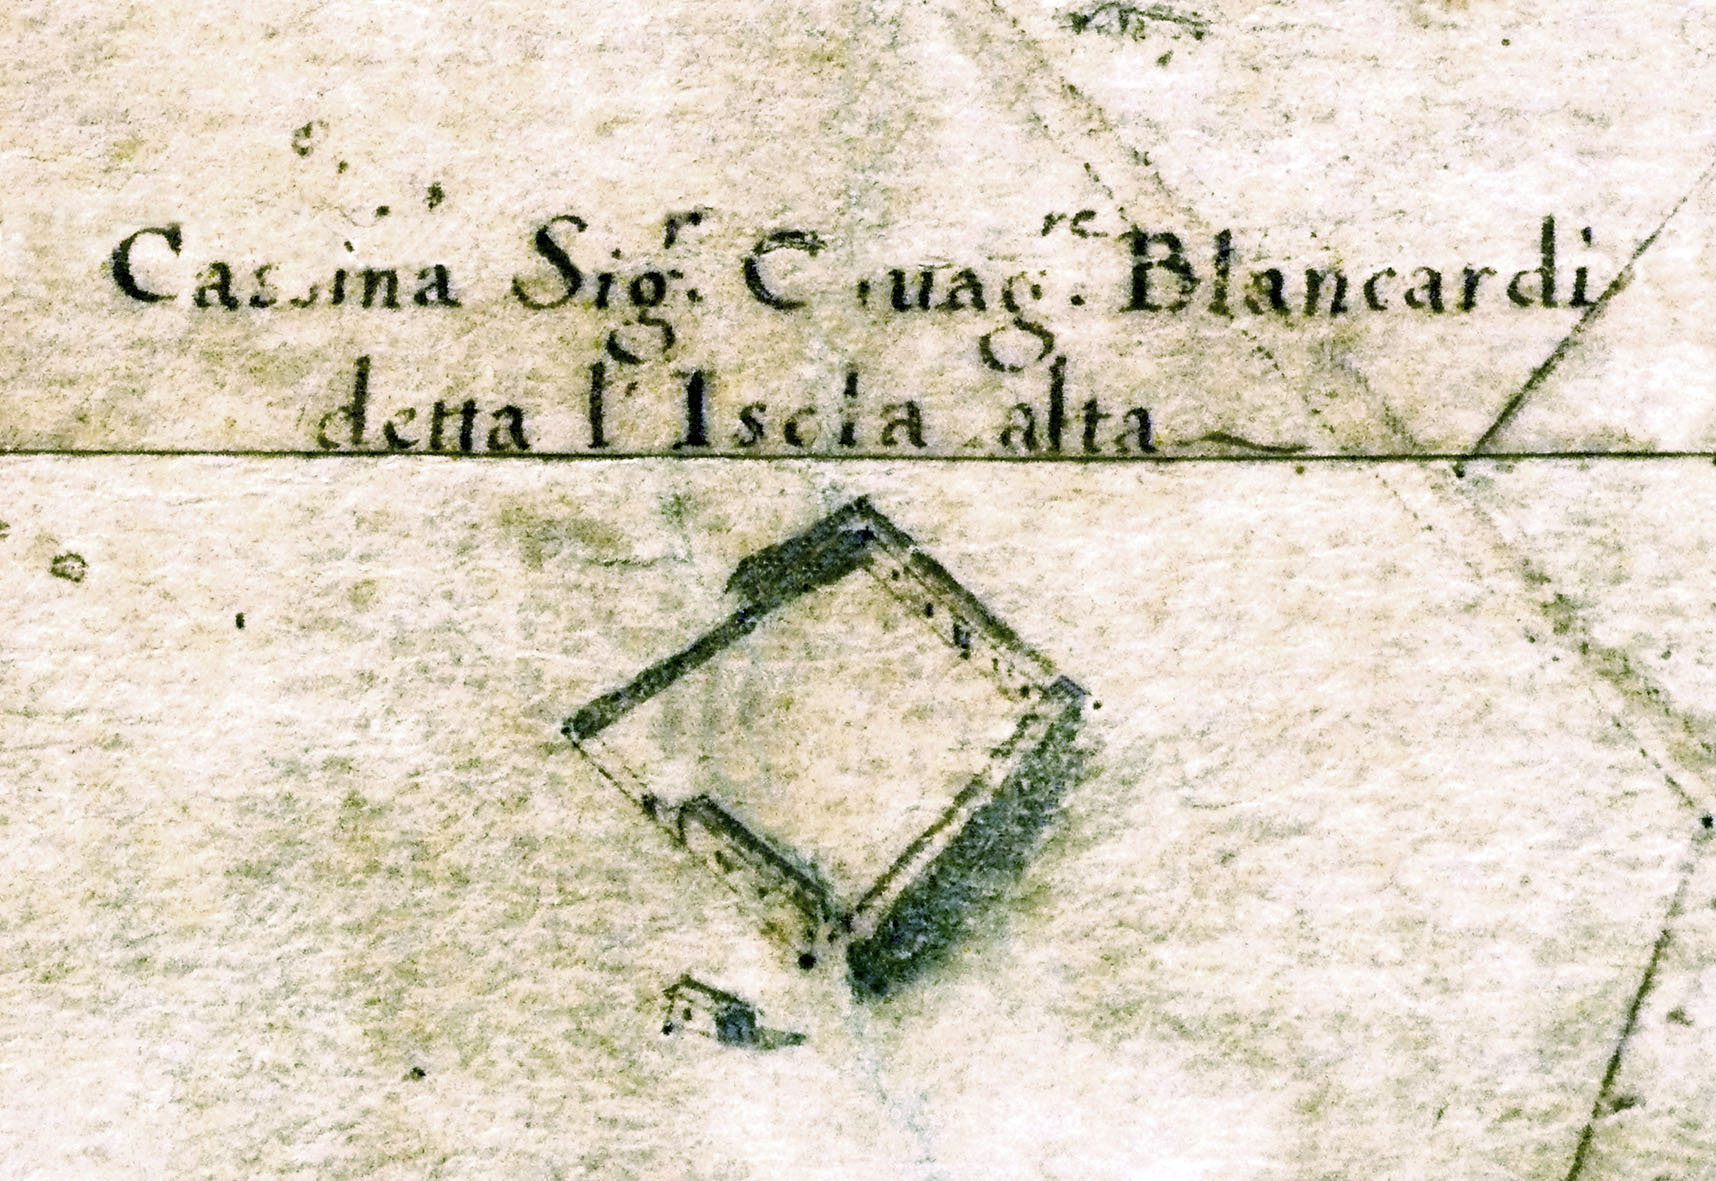 Cassina Sig.ʳ Blancardi
detta l'Iscla alta